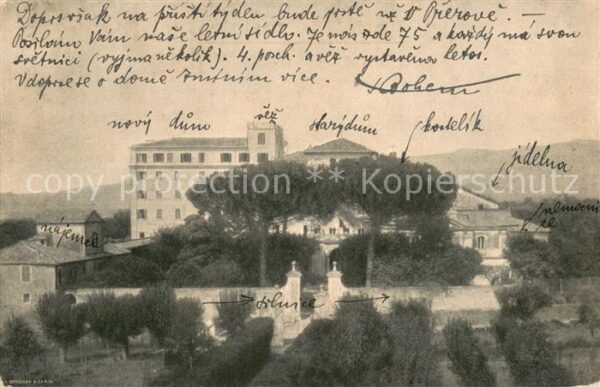 Dopis však na příští týden bude prstě už V Přerově. —
Posílám Vám naše letní sídlo. Je nás zde 75 a každý má svou
světnici (vyjma několik). 4. posch. a věž vystavěno letos.
V dopise o domě vnitřním více. S Bohem
nový dům věž starý dům kostelík
jídelna
nájemce
silnice
** copy protection ** Kopierschutz **